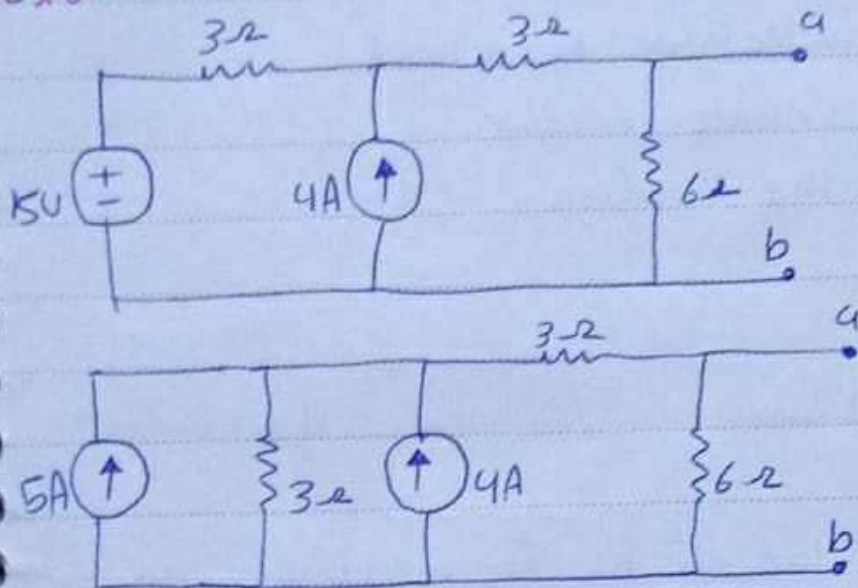 3Ω 3Ω a
15V + - 4A 6Ω
b
3Ω a
5A 3Ω 4A 6Ω
b